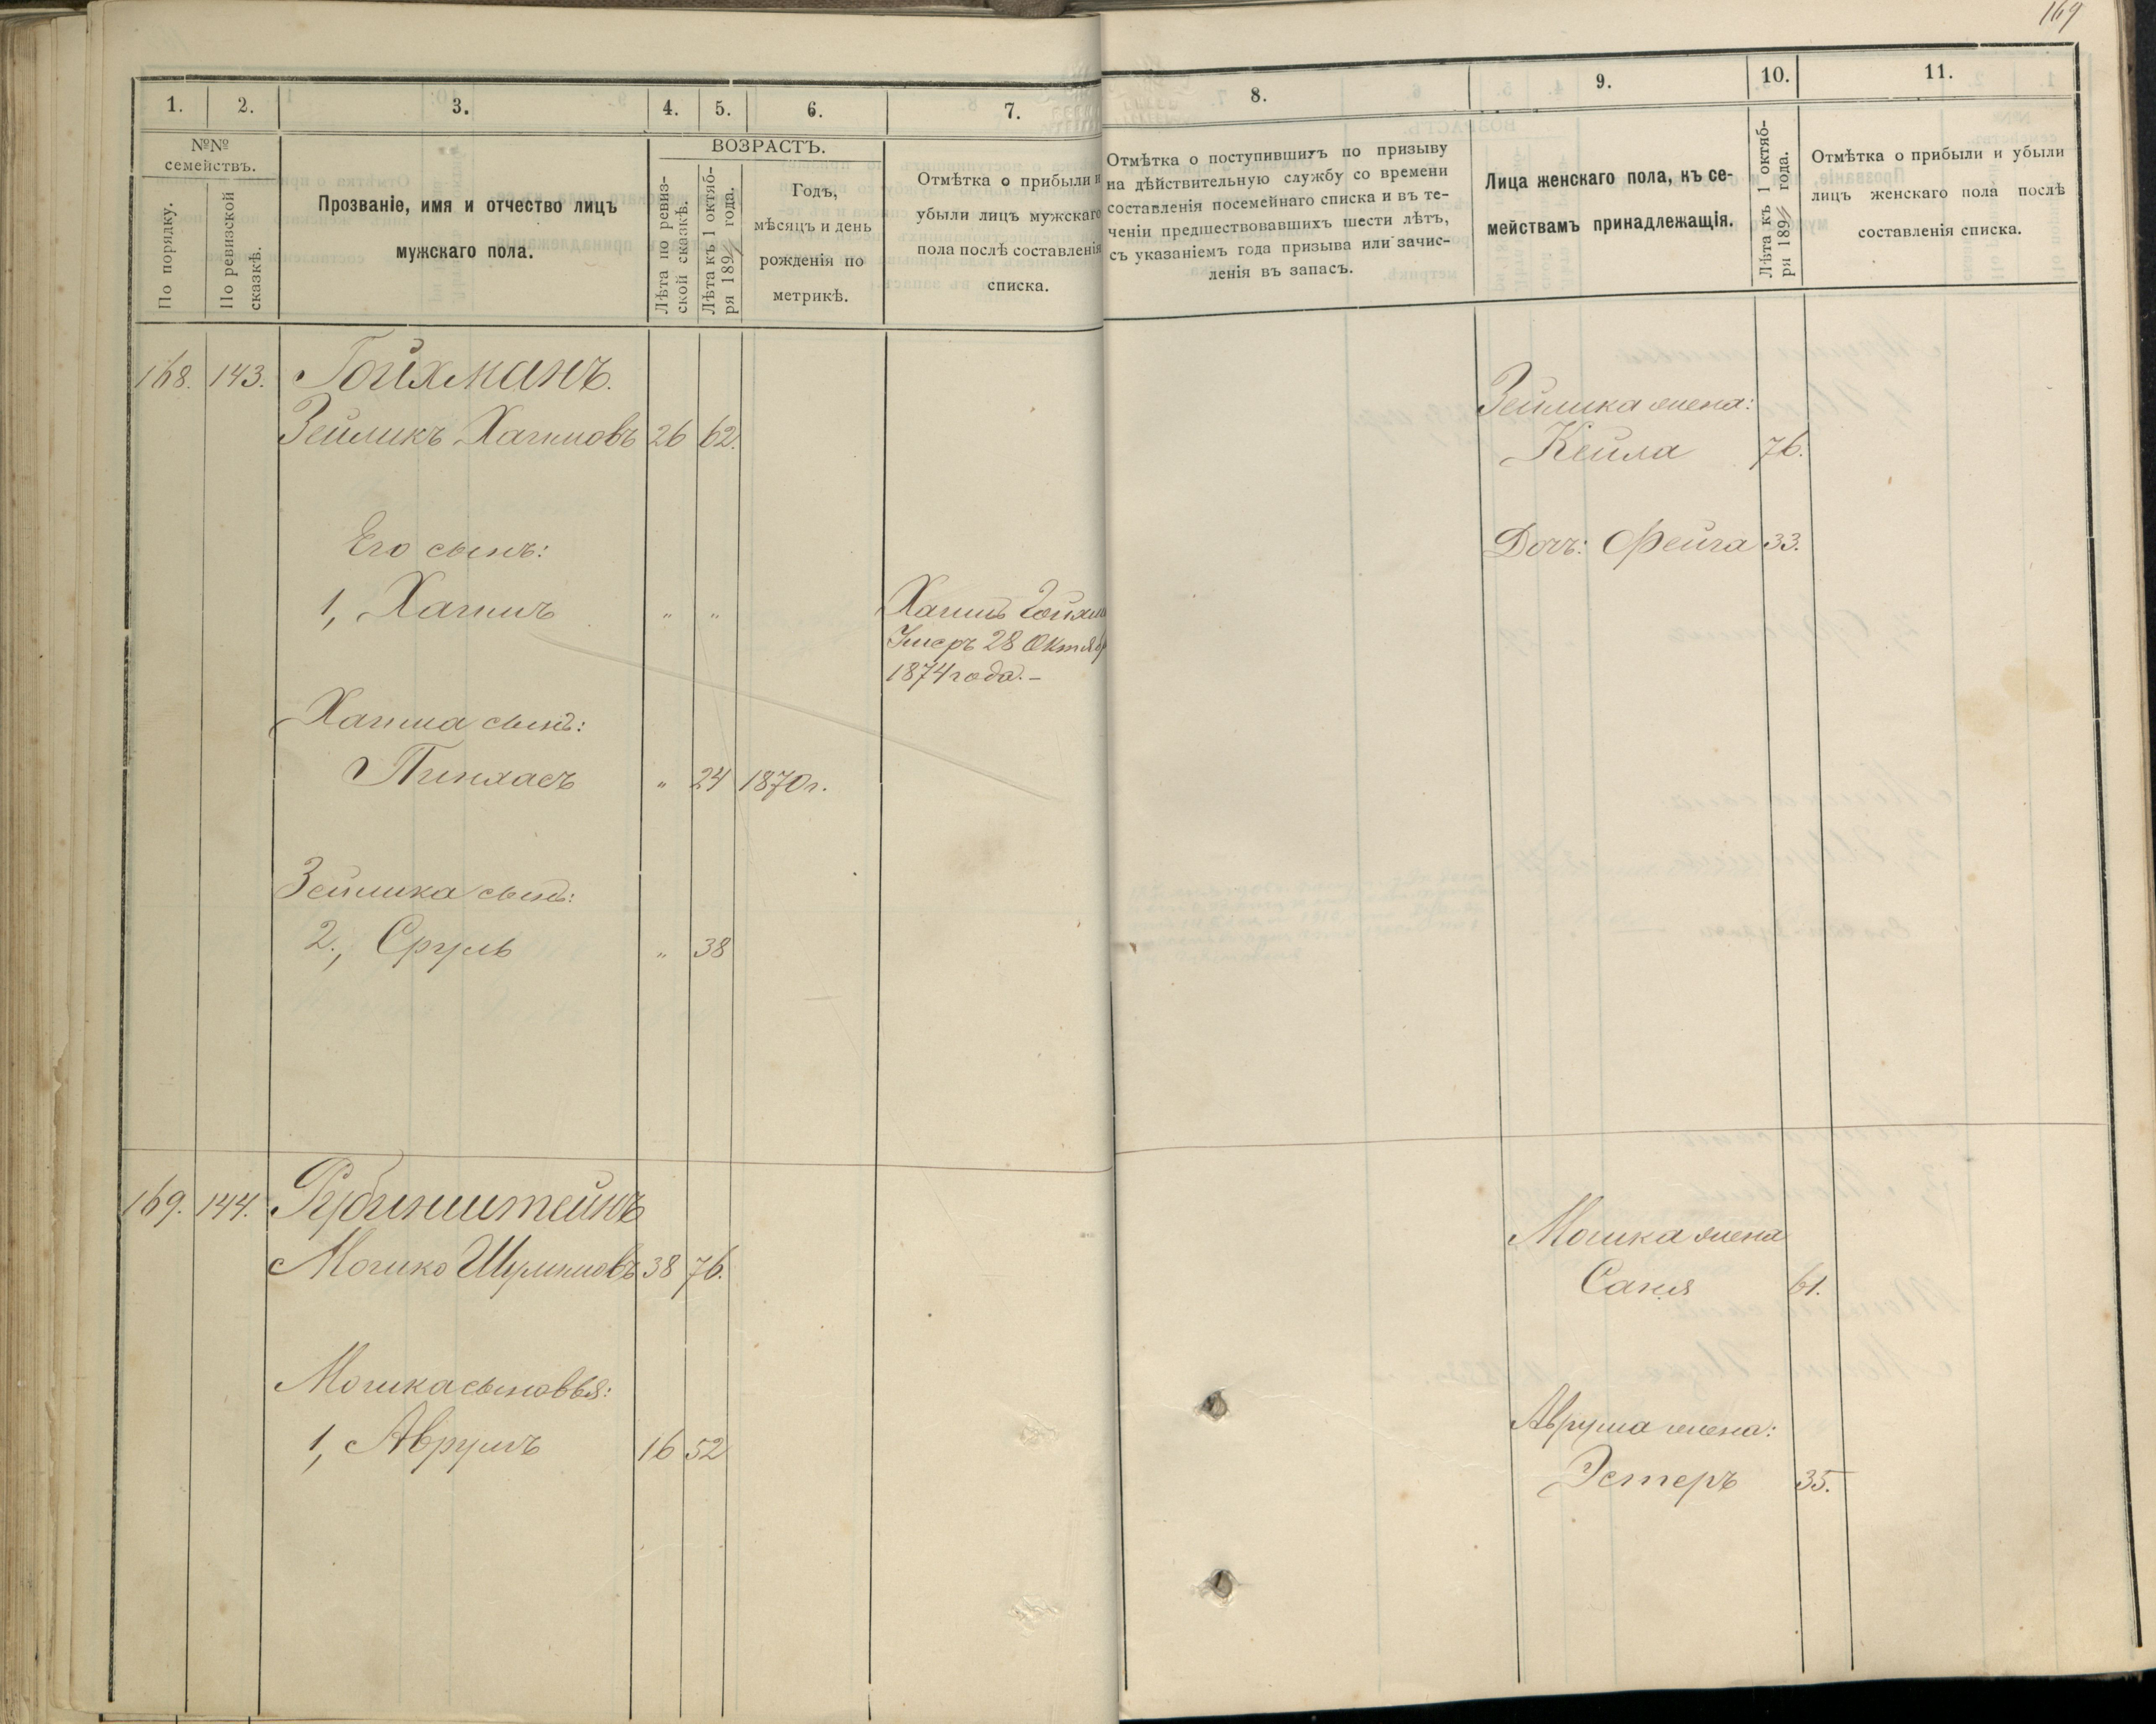 169
1.
2.
3.
4.
5.
6.
7.
8.
9.
10.
11.
№№
семействъ.
По порядку.
По ревизской
сказкѣ.
Прозваніе, имя и отчество лицъ
мужскаго пола.
ВОЗРАСТЪ.
Лѣта по ревиз-
ской сказкѣ.
Лѣта къ 1 октяб-
ря 189 года.
Годъ,
мѣсяцъ и день
рожденія по
метрикѣ.
Отмѣтка о прибыли и
убыли лицъ мужскаго
пола послѣ составленія
списка.
Отмѣтка о поступившихъ по призыву
на дѣйствительную службу со времени
составленія посемейнаго списка и въ те-
ченіи предшествовавшихъ шести лѣтъ,
съ указаніемъ года призыва или зачис-
ленія въ запасъ.
Лица женскаго пола, къ се-
мействамъ принадлежащія.
Лѣта къ 1 октяб-
ря 189 года.
Отмѣтка о прибыли и убыли
лицъ женскаго пола послѣ
составленія списка.
168. 143. Гойхманъ.
Зейликъ Хаимовъ 26 62.
Зейлика жена:
Кейла 76.
Его сынъ:
Дочь: Фейга 33.
1, Хаимъ " "
Хаимъ Гойхм
Умеръ 28 Октяб
1874 года.-
Хаима сынъ:
Пинхасъ " 24 1870 г.
Зейлика сынъ:
2., Сруль " 38
169. 144. Рубинштейнъ
Мошко Шулимовъ 38 76.
Мошка жена
Саня 61.
Мошка сыновья:
1, Аврумъ 16 52
Аврума жена:
Эстеръ 35.